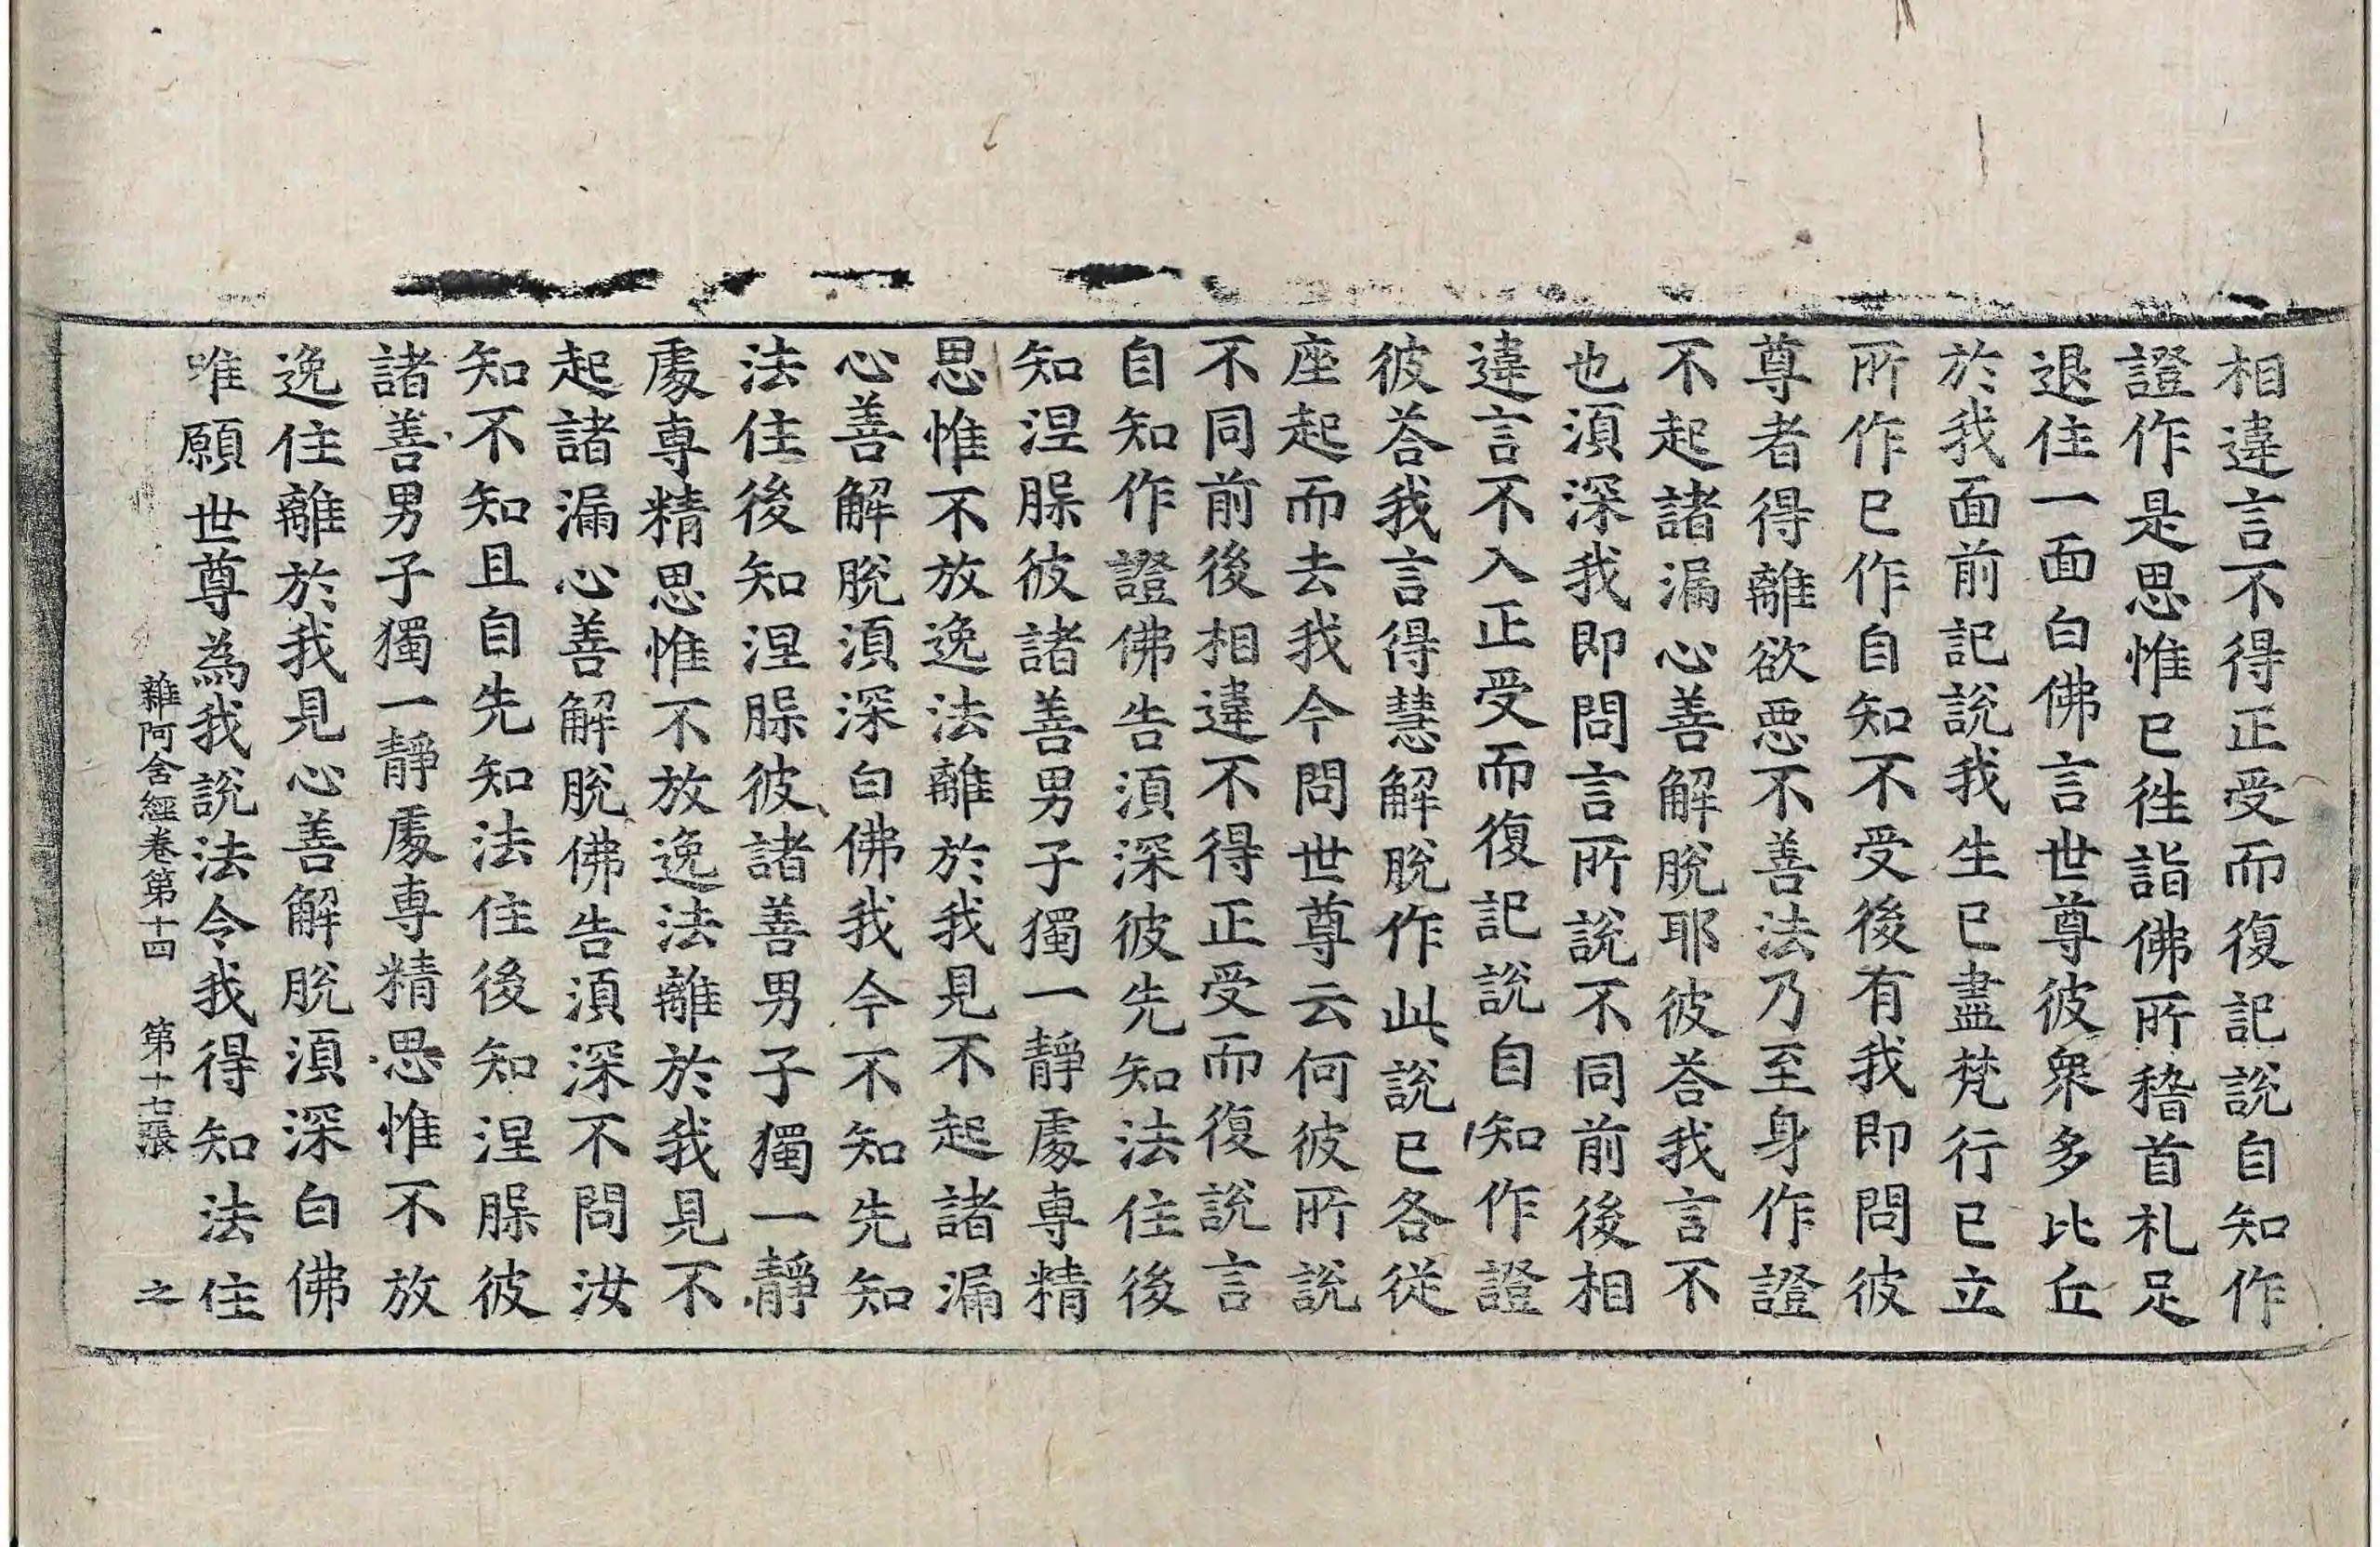 相違言不得正受而復記說自知作
證作是思惟已徃詣佛所稽首礼足
退住一面白佛言世尊彼衆多比丘
於我面前記說我生已盡梵行已立
所作已作自知不受後有我即問彼
尊者得離欲惡不善法乃至身作證
不起諸漏心善解脫耶彼荅我言不
也湏深我即問言所說不同前後相
違言不入正受而復記說自知作證
彼荅我言得慧解脫作此說已各從
座起而去我今問世尊云何彼所說
不同前後相違不得正受而復說言
自知作證佛告湏深彼先知法住後
知涅槃彼諸善男子獨一靜處專精
思惟不放逸法離於我見不起諸漏
心善解脫湏深白佛我今不知先知
法住後知涅槃彼諸善男子獨一靜
處專精思惟不放逸法離於我見不
起諸漏心善解脫佛告湏深不問汝
知不知且自先知法住後知涅槃彼
諸善男子獨一靜處專精思惟不放
逸住離於我見心善解脫湏深白佛
唯願世尊為我說法令我得知法住
雜阿含經卷第十四 第十七張 之